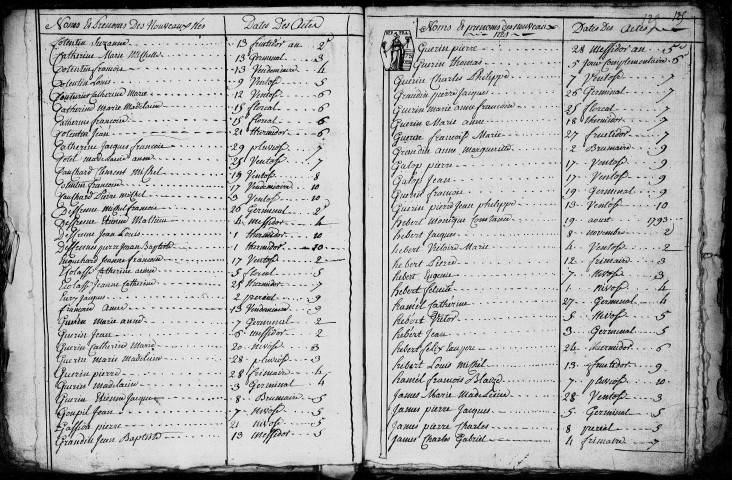 Noms & Prenoms Des Nouveaux Nés Dates Des Actes
Colentin Suzanne 13 fructidor an 2e
Catherine Marie Michelle 13 Germinal 3
Colentin francois 13 Vendemiaire 4
Colentin Louis 9 Ventose 5
Couturier Catherine Marie 12 Ventose 6
Catherine Marie Madelaine 15 floreal 6
Catherine francoise 15 floreal 6
Colentin Jean 21 thermidor 6
Catherine Jacques francois 29 pluviose 7
Cotel madelaine anne 25 Ventose 7
Clement michel 19 Ventose 8
Colentin francoise 17 Vendemiaire 10
Pierre michel 3 Ventose 10
Desfresne Michel francois 26 Germinal 2e
Desfresne Etienne Mathieu 4 Messidor 4
Desfresne Jean Louis 1 thermidor 10
Desfresnes pierre Jean Baptiste 1 thermidor 10
Jeanne francoise 17 Ventose 2
Catherine aimée 5 floreal 5
Jeanne Catherine 25 thermidor 7
Jacques 2 prereal 9
francoise Anne 13 Vendemiaire 9
Guerin Marie anne 7 Germinal 2
Guerin Jean 6 messidor 2
Guerin Catherine Marie 20 nivose 3
Guerin Marie Madelaine 28 pluviose 3
Guerin pierre 28 frimaire 4
Guerin Madelaine 3 Germinal 4
Guerin Etienne Jacques 8 Brumaire 5
Goupil Jean 7 nivose 5
Gassion pierre 21 nivose 5
Grandin Jean Baptiste 13 messidor 5
125
Noms & prenoms des nouveaux nés Dates Des Actes
Guerin pierre 28 Messidor an 5e
Guerin thomas 5 jour complementaire 6e
Guerin Charles philippe 7 Ventose 7
Grandin pierre Jacques 26 Germinal 7
Guerin Marie anne francoise 25 floreal 7
Guerin Marie anne 18 thermidor 7
Guerin francois Marie 27 fructidor 7
Grandin anne Marguerite 2 Brumaire 9
Galop pierre 17 Ventose 9
Galop Jean 17 Ventose 9
Guerin francois 19 Germinal 9
Guerin pierre Jean philippe 13 Ventose 10
hebert Monique Constance 19 aout 1793
hebert Jacques 8 novembre 2
hebert Victoire Marie 4 Ventose 2
hebert Pierre 12 frimaire 3
hebert Eugenie 7 nivose 3
hebert felicité 1 nivose 4
hamel Catherine 27 Germinal 4
hebert Victor 5 nivose 5
hebert Jean 3 Germinal 5
hebert felix 24 thermidor 6
hebert Louis michel 13 fructidor 9
hamel francois 7 pluviose 10
James Marie Madeleine 28 Ventose 3
James pierre Jacques 5 Germinal 5
James pierre Charles 8 prereal 5
James Charles Gabriel 4 frimaire 7